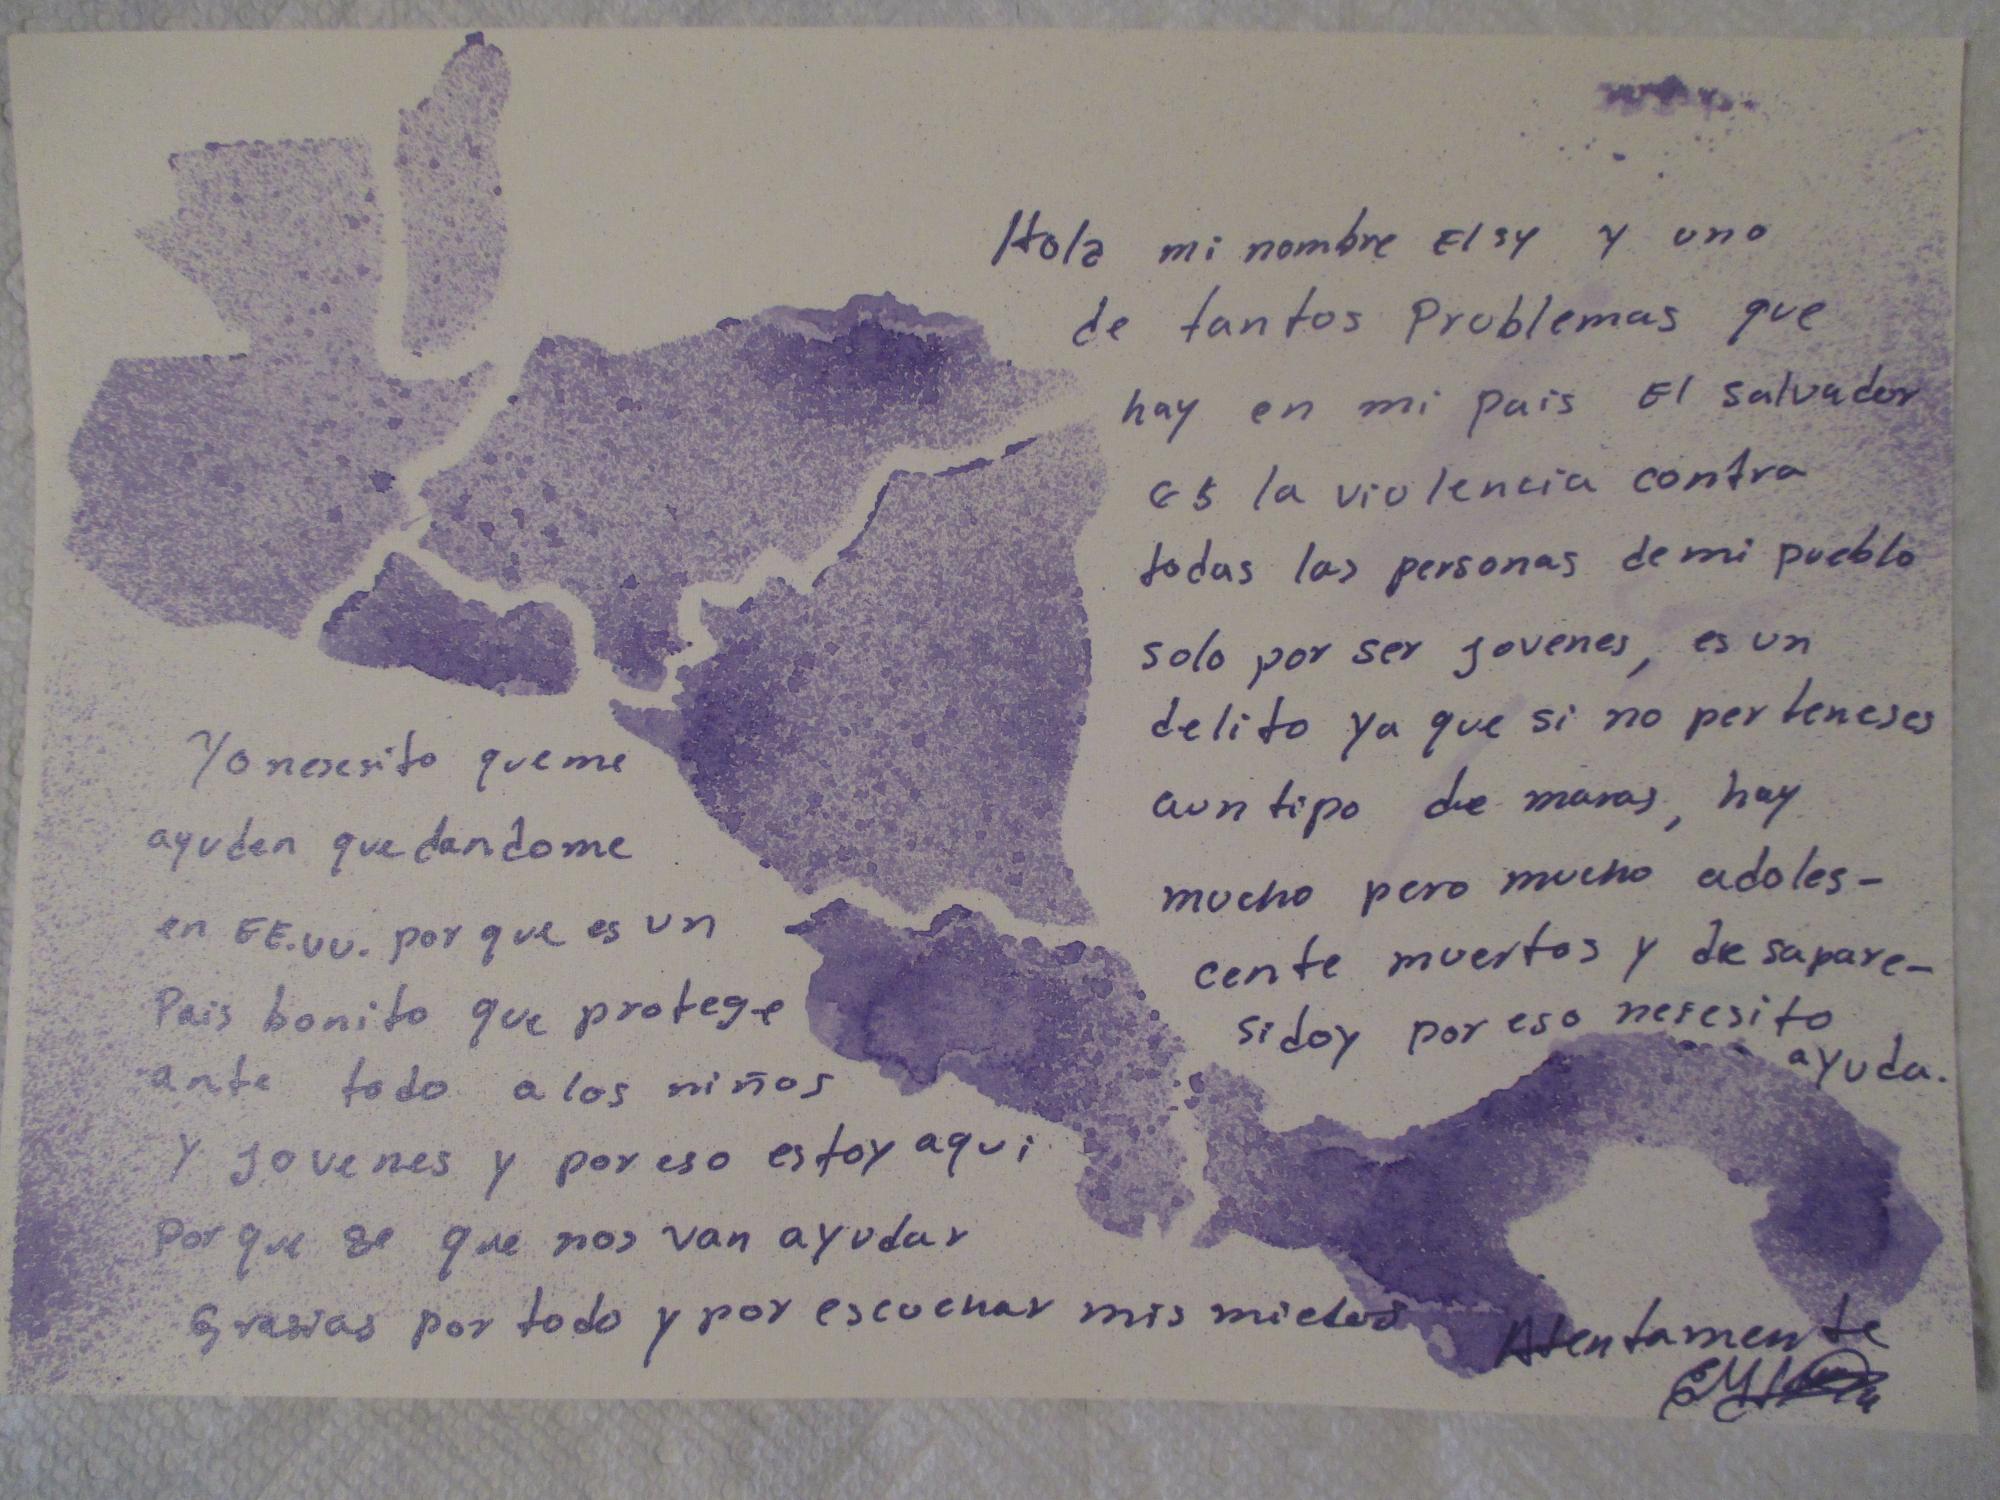 Hola mi nombre Elsy y uno
de tantos Problemas que
hay en mi pais El Salvador
es la violencia contra
todas las personas de mi pueblo
solo por ser jovenes, es un
delito ya que si no perteneses
a un tipo de maras, hay
mucho pero mucho adoles-
cente muertos y desapare-
sidoy por eso nesesito
ayuda.
Yo nesesito que me
ayuden quedandome
en EE.UU. por que es un
Pais bonito que protege
ante todo a los niños
y jovenes y por eso estoy aqui
Por que se que nos van ayudar
Grasias por todo y por escuchar mis miedos
Atentamente